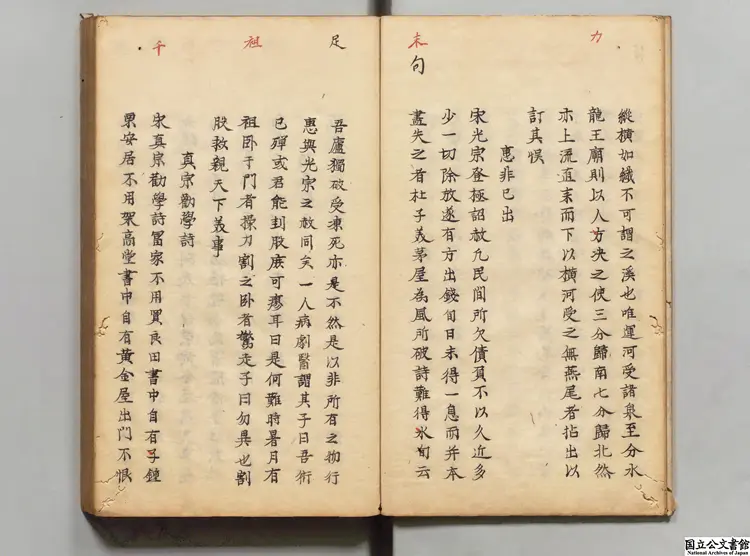 力
縱橫如織不可謂之溪也唯運河受諸泉至分水
龍王廟則以人方决之使三分歸南七分歸北然
亦上流直来而下以橫河受之無燕尾者拈出以
訂其悞
惠非已出
宋光宗登極詔赦凡民間所欠債負不以久近多
少一切除放遂有方出錢旬日未得一息而并本
末
句
盡失之者杜子美茅屋為風所破詩難得氷旬云
足
吾廬獨破受凍死亦是不然是以非所有之物行
惠與光宗之赦同矣一人病劇醫謂其子曰吾術
已殫或君能刲股庶可瘳耳曰是何難時暑月有
祖
祖卧于門者操力割之卧者驚走子曰勿異也割
股救親天下美事
真宗勸學詩
千
宋真宗勸學詩冨家不用買良田書中自有子鍾
粟安居不用架高堂書中自有黃金屋出門不恨
国立公文書館
National Archives of Japan